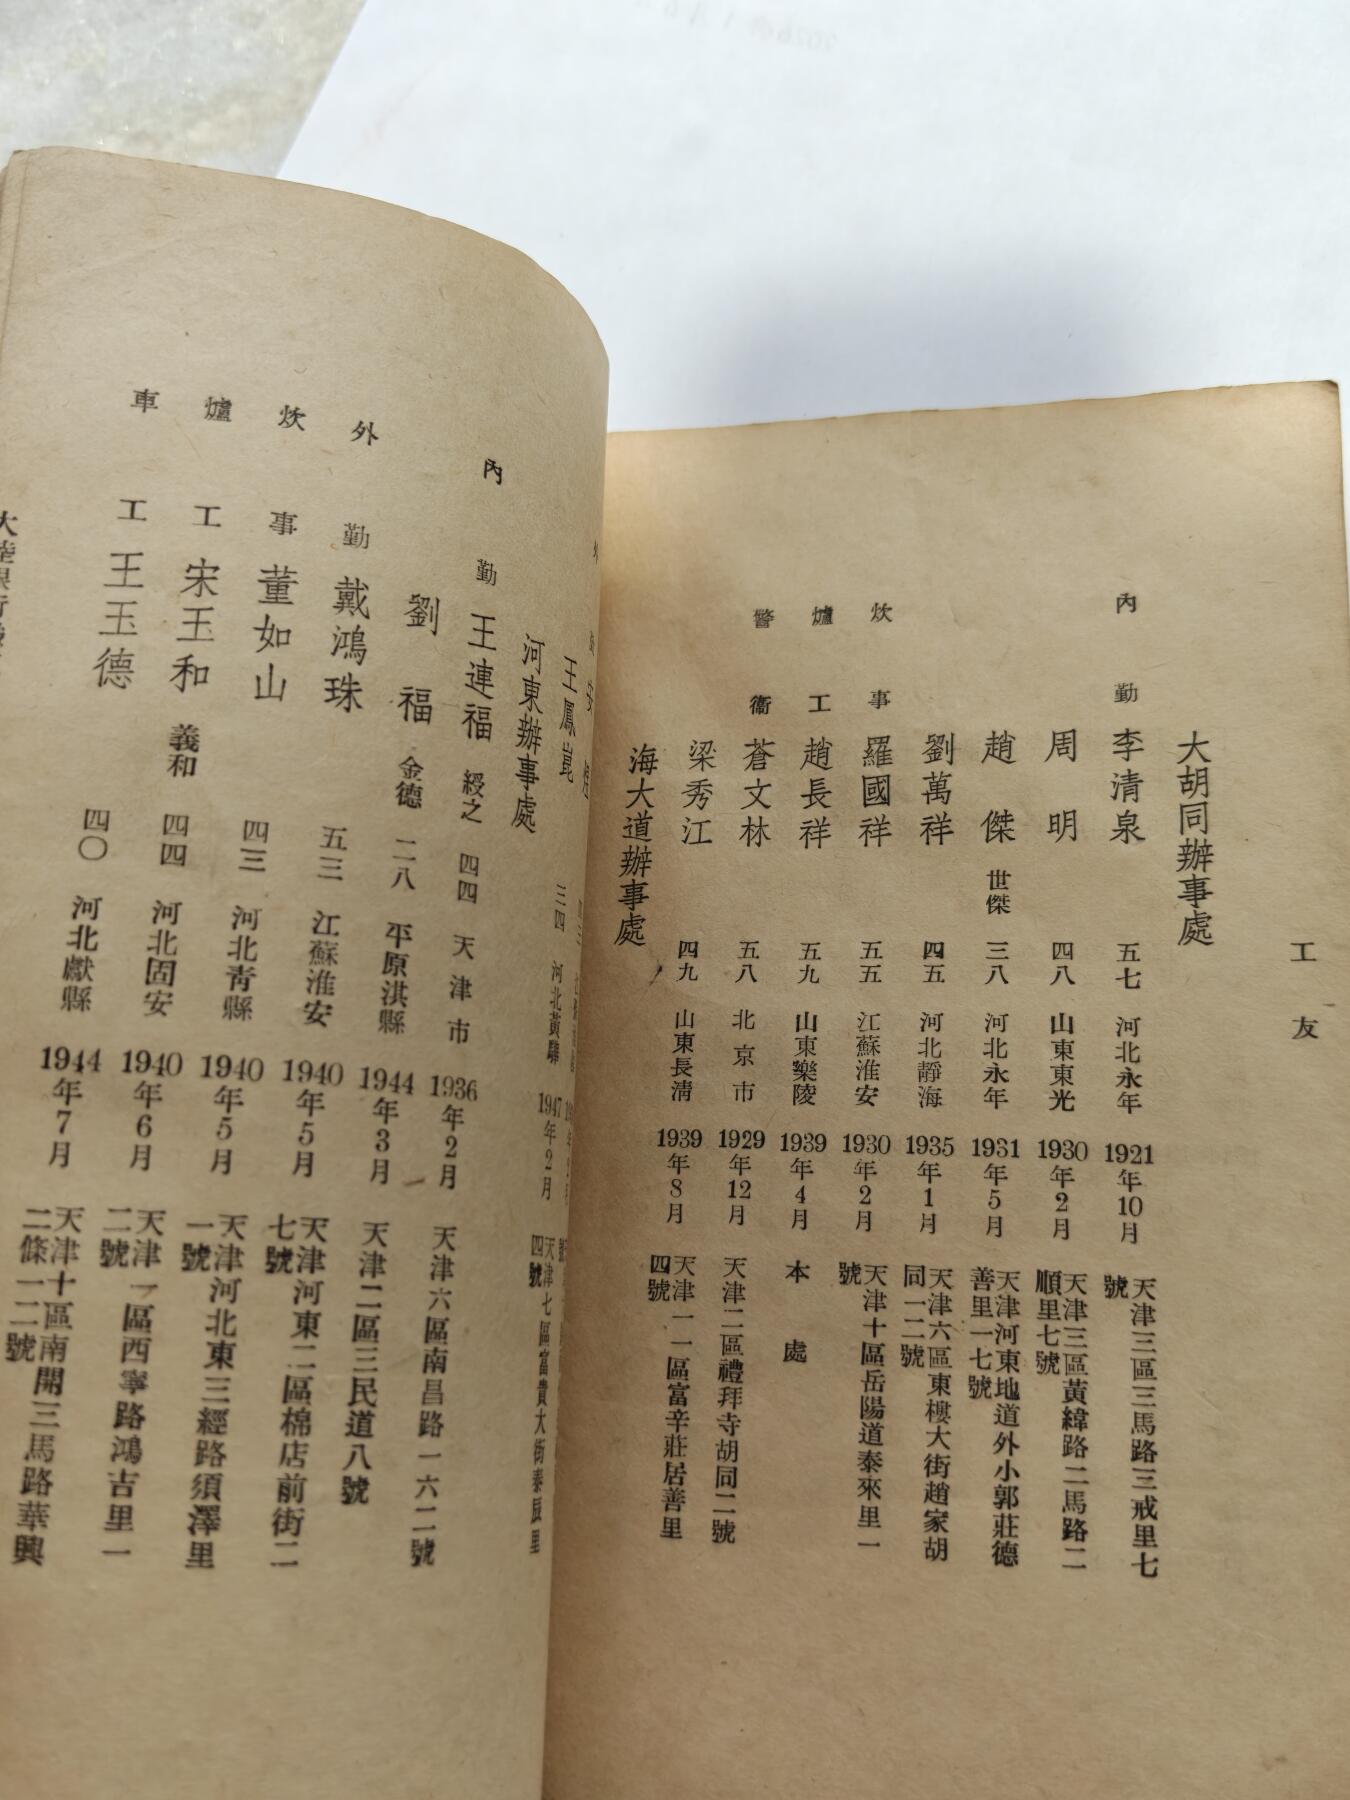 工友
大胡同辦事處
內勤 李清泉 五七 河北永年 1921年10月 天津三區三馬路三戒里七號
周明 四八 山東東光 1930年2月 天津三區黃緯路二馬路二順里七號
趙傑 世傑 三八 河北永年 1931年5月 天津河東地道外小郭莊德善里一七號
劉萬祥 四五 河北靜海 1935年1月 天津六區東樓大街趙家胡同一二號
炊事 羅國祥 五五 江蘇淮安 1930年2月 天津十區岳陽道泰來里一號
爐工 趙長祥 五九 山東樂陵 1939年4月 本處
警衞 蒼文林 五八 北京市 1929年12月 天津二區禮拜寺胡同二號
梁秀江 四九 山東長清 1939年8月 天津一一區富辛莊居善里四號
海大道辦事處
王鳳崑 三四 河北黃驊 1947年2月 天津七區富貴大街泰辰里四號
河東辦事處
內勤 王連福 綬之 四四 天津市 1936年2月 天津六區南昌路一六二號
劉福 金德 二八 平原淇縣 1944年3月 天津二區三民道八號
外勤 戴鴻珠 五三 江蘇淮安 1940年5月 天津河東二區棉店前街二七號
炊事 董如山 四三 河北青縣 1940年5月 天津河北東三經路須澤里一號
爐工 宋玉和 義和 四四 河北固安 1940年6月 天津一區西寧路鴻吉里一二號
車工 王玉德 四〇 河北獻縣 1944年7月 天津十區南開三馬路華興二條一二號